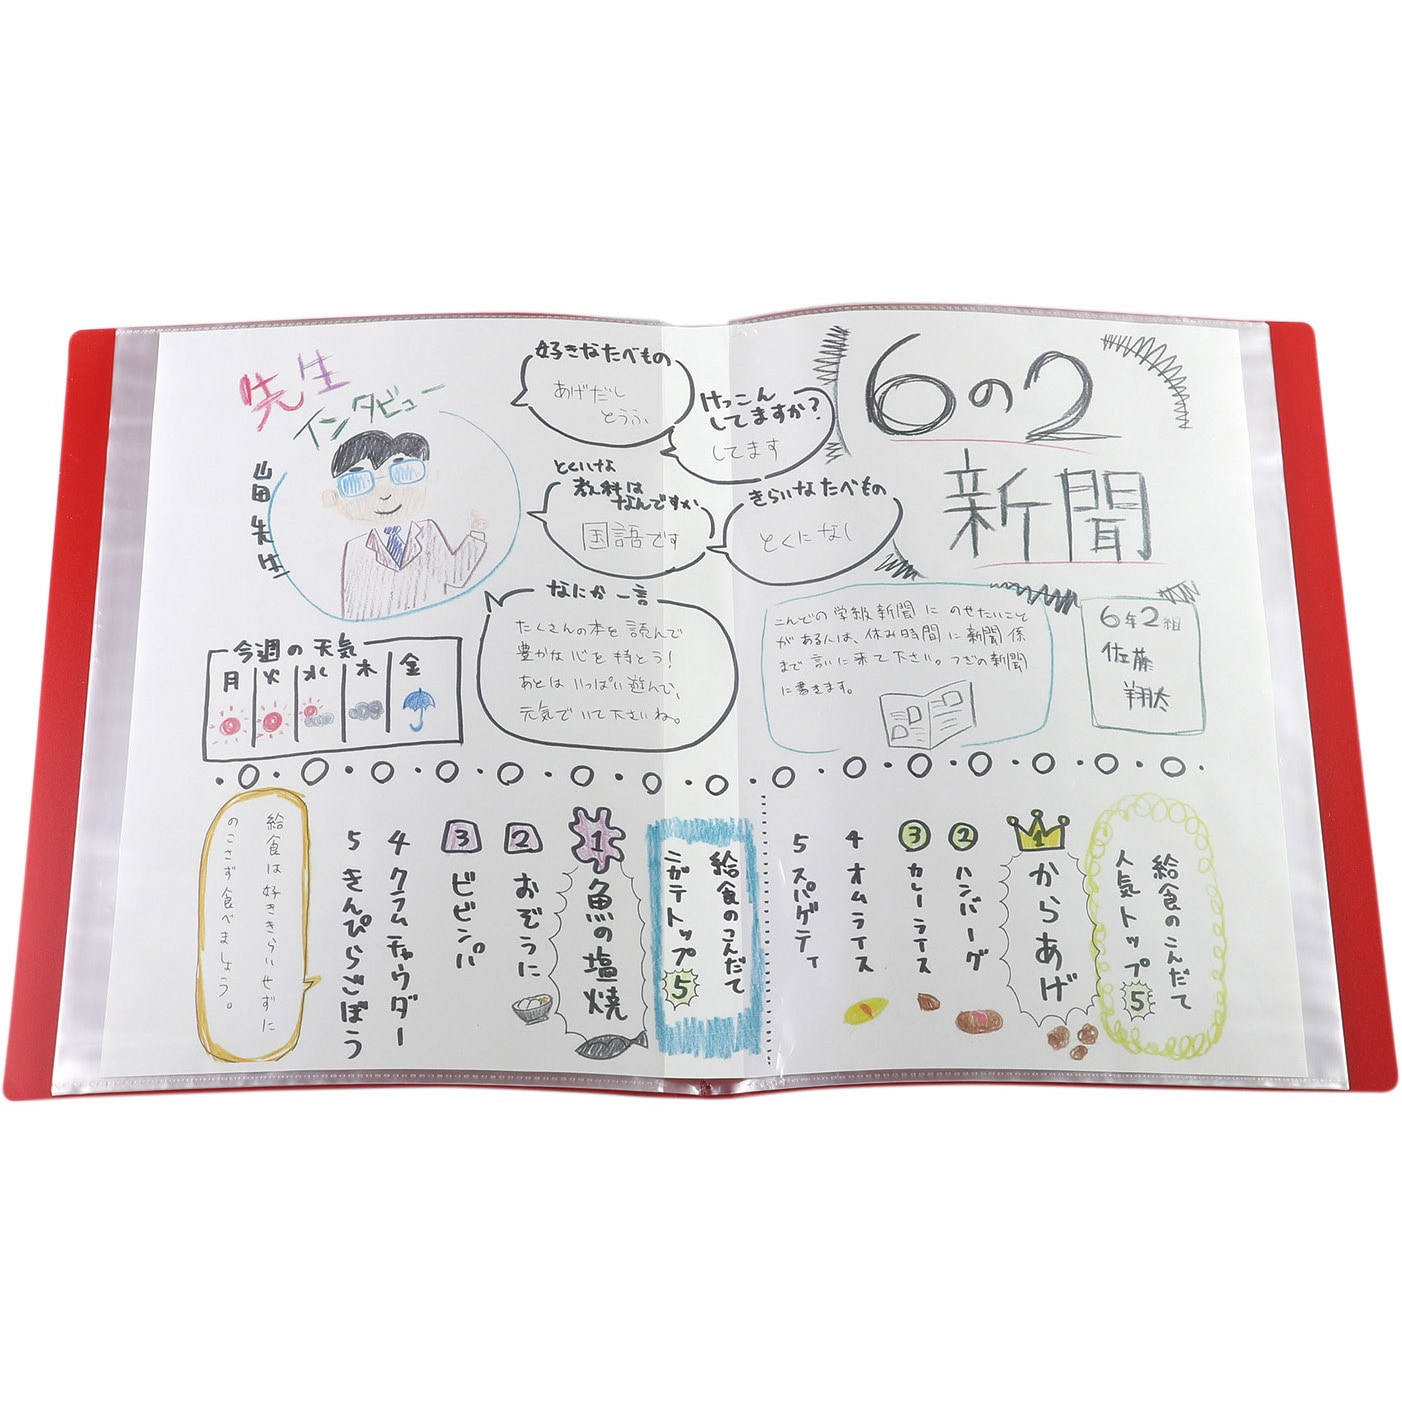 6の2
新聞
6年2組
佐藤
翔太
こんどの学級新聞にのせたいこと
がある人は、休み時間に新聞係
まで言いに来て下さい。つぎの新聞
に書きます。
先生
インタビュー
山田先生
好きなたべもの
あげだし
とうふ
けっこん
してますか?
してます
とくいな
教科は
なんですか
国語です
きらいなたべもの
とくになし
なにか一言
たくさんの本を読んで
豊かな心を持とう!
あとはいっぱい遊んで、
元気でいて下さいね。
今週の天気
月 火 水 木 金
給食のこんだて
人気トップ5
1 からあげ
2 ハンバーグ
3 カレーライス
4 オムライス
5 スパゲティ
給食のこんだて
ニガテトップ5
1 魚の塩焼
2 おぞうに
3 ビビンバ
4 クラムチャウダー
5 きんぴらごぼう
給食は好ききらいせずに
のこさず食べましょう。